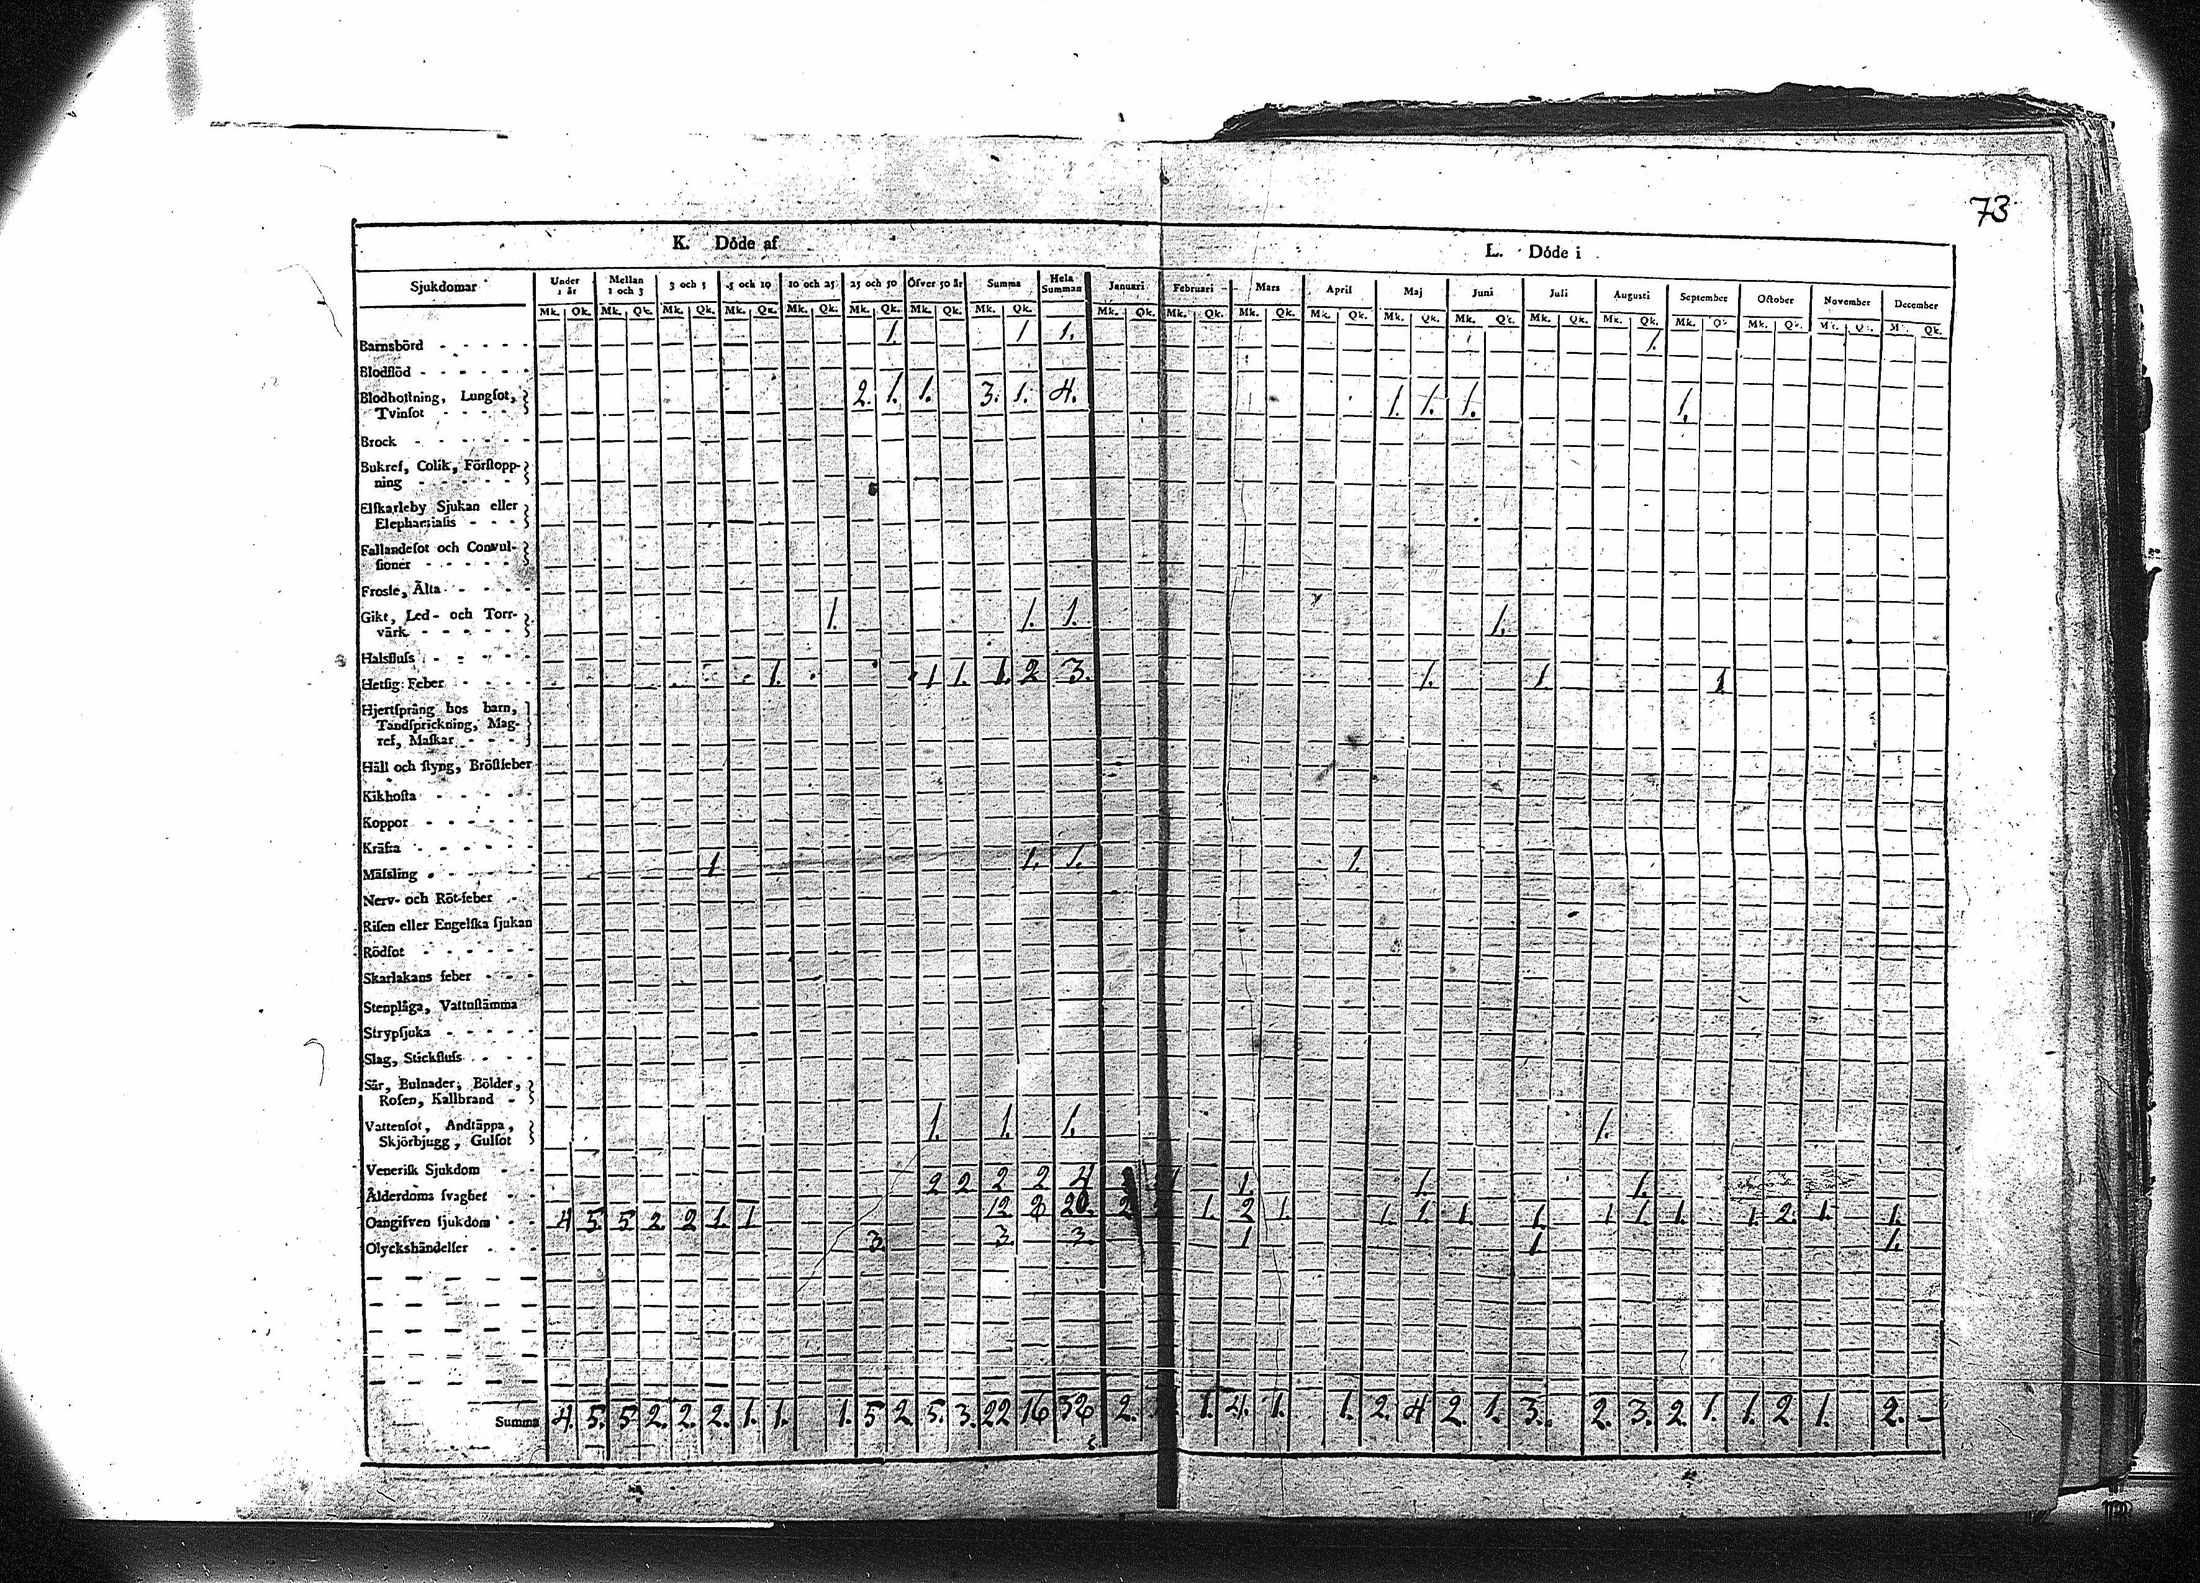 73
K. Döde af
L. Döde i
Sjukdomar Under 1 år Mellan 1 och 3 3 och 5 5 och 10 10 och 25 25 och 50 Öfver 50 år Summa Hela Summan Januari Februari Mars April Maj Juni Juli Augusti September October November December
Mk. Qk. Mk. Qk. Mk. Qk. Mk. Qk. Mk. Qk. Mk. Qk. Mk. Qk. Mk. Qk. Mk. Qk. Mk. Qk. Mk. Qk. Mk. Qk. Mk. Qk. Mk. Qk. Mk. Qk. Mk. Qk. Mk. Qk. Mk. Qk. Mk. Qk. Mk. Qk.
Barnsbörd 1. 1 1. 1.
Blodflöd
Blodhoſtning, Lungſot,
Tvinſot 2. 1. 1. 3. 1. 4. 1. 1. 1. 1.
Brock
Bukref, Colik, Förſtopp-
ning
Elfkarleby Sjukan eller
Elephantiaſis
Fallandeſot och Convul-
ſioner
Frosſe, Älta
Gikt, Led- och Torr-
värk 1. 1. 1. 1.
Halsfluſs
Hetſig Feber 1. 1 1. 1. 2 3. 1. 1. 1
Hjertſprång hos barn,
Tandſprickning, Mag-
ref, Maſkar
Håll och ſtyng, Bröſtfeber
Kikhoſta
Koppor
Kräfta
Mäſsling 1 1. 1. 1.
Nerv- och Röt-feber
Riſen eller Engelſka ſjukan
Rödſot
Skarlakans feber
Stenplåga, Vattuſtämma
Strypſjuka
Slag, Stickfluſs
Sår, Bulnader, Bölder,
Roſen, Kallbrand
Vattenſot, Andtäppa,
Skjörbjugg, Gulſot 1. 1. 1. 1.
Veneriſk Sjukdom
Ålderdoms ſvaghet 2 2 2 2 4 1. 1. 1.
Oangifven ſjukdom 4 5 5 2 2 1. 1 12 8 20. 2 1. 2 1. 1. 1. 1. 1. 1 1. 1. 1. 2. 1. 1.
Olyckshändelſer 3 3. 3. 1 1 1.
Summa 4. 5. 5 2. 2. 2. 1. 1. 1. 5 2. 5. 3. 22 16 38 2. 1. 4. 1. 1. 2. 4 2. 1. 3. 2. 3. 2 1. 1. 2 1. 2. —